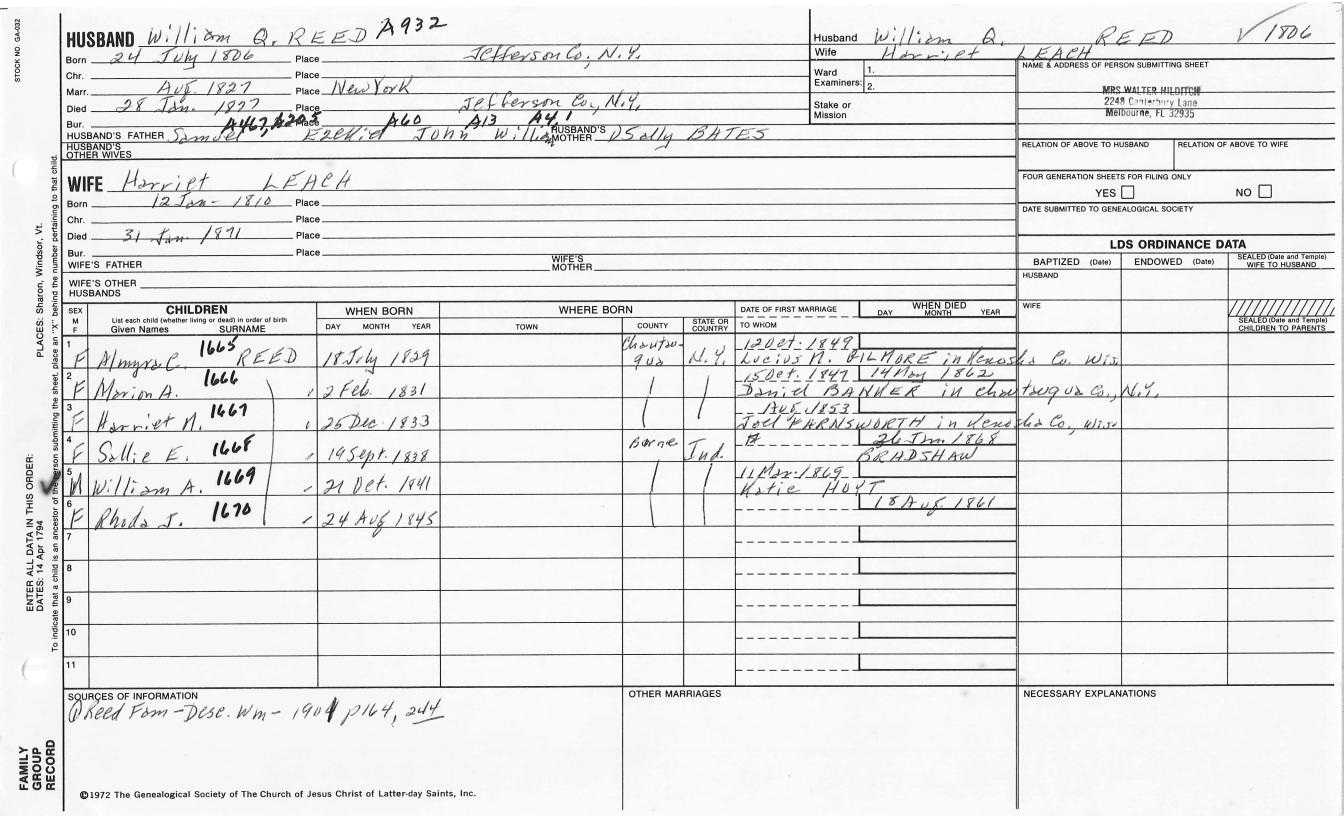 STOCK NO. GA-032
HUSBAND William Q. REED A932
Born 24 July 1806 Place Jefferson Co., N.Y.
Chr. Place
Marr. Aug. 1827 Place New York
Died 28 Jan. 1877 Place Jefferson Co., N.Y.
Bur. Place
A467, A203 A60 A13 A4, 1
HUSBAND'S FATHER Samuel Ezekiel John William HUSBAND'S MOTHER Sally BATES
HUSBAND'S OTHER WIVES
Husband William Q. REED √ 1806
Wife Harriet LEACH
Ward 1.
Examiners: 2.
Stake or
Mission
NAME & ADDRESS OF PERSON SUBMITTING SHEET
MRS WALTER HILDITCH
2248 Canterbury Lane
Melbourne, FL 32935
RELATION OF ABOVE TO HUSBAND RELATION OF ABOVE TO WIFE
FOUR GENERATION SHEETS FOR FILING ONLY
YES NO
DATE SUBMITTED TO GENEALOGICAL SOCIETY
WIFE Harriet LEACH
Born 12 Jan- 1810 Place
Chr. Place
Died 31 Jan 1871 Place
Bur. Place
WIFE'S FATHER WIFE'S MOTHER
WIFE'S OTHER HUSBANDS
LDS ORDINANCE DATA
BAPTIZED (Date) ENDOWED (Date) SEALED (Date and Temple) WIFE TO HUSBAND
HUSBAND
WIFE
SEALED (Date and Temple) CHILDREN TO PARENTS
SEX M F CHILDREN List each child (whether living or dead) in order of birth Given Names SURNAME WHEN BORN DAY MONTH YEAR WHERE BORN TOWN COUNTY STATE OR COUNTRY DATE OF FIRST MARRIAGE TO WHOM WHEN DIED DAY MONTH YEAR
1 F Almyra C. 1665 REED 18 July 1829 Chautauqua N.Y. 12 Oct. 1849 Lucius M. GILMORE in Kenosha Co. Wis.
2 F Marion A. 1666 " 2 Feb. 1831 15 Oct. 1847 14 May 1862 Daniel BANKER in Chautauqua Co., N.Y.
3 F Harriet M. 1667 " 25 Dec. 1833 Aug. 1853 Joel FARNSWORTH in Kenosha Co., Wisc
4 F Sallie E. 1668 " 19 Sept. 1838 Borne Ind. 26 Jan 1868 BRADSHAW
5 M William A. 1669 " 21 Oct. 1841 11 Mar. 1869 Katie HOYT
6 F Rhoda J. 1670 " 24 Aug 1845 18 Aug. 1861
7
8
9
10
11
SOURCES OF INFORMATION
① Reed Fam - Desc. Wm - 1901 p164, 244
OTHER MARRIAGES
NECESSARY EXPLANATIONS
©1972 The Genealogical Society of The Church of Jesus Christ of Latter-day Saints, Inc.
ENTER ALL DATA IN THIS ORDER:
DATES: 14 Apr 1794 PLACES: Sharon, Windsor, Vt.
To indicate that a child is an ancestor of the person submitting the sheet, place an "X" behind the number pertaining to that child.
FAMILY
GROUP
RECORD